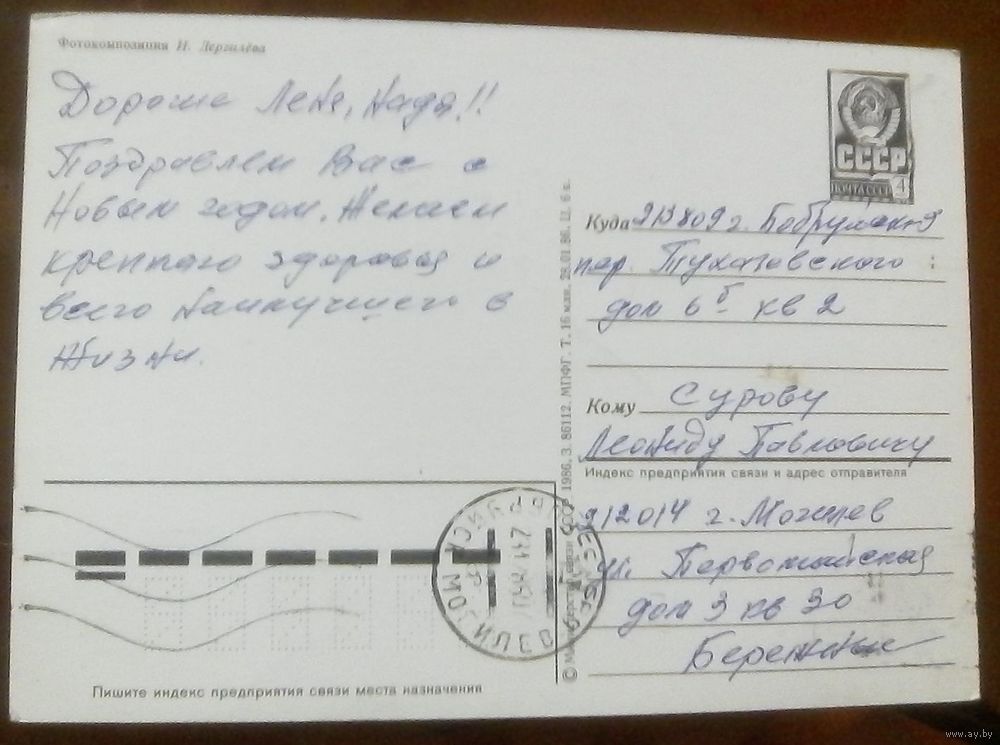 Фотокомпозиция И. Дергилёва
Дорогие Лёня, Надя!!
Поздравляем Вас с
Новым годом. Желаем
крепкого здоровья и
всего наилучшего в
жизни.
СССР
ПОЧТА СССР 4
Куда 213809 г. Бобруйск-9
пер. Тухачевского
дом 6б кв 2
Кому Сурову
Леониду Павловичу
Индекс предприятия связи и адрес отправителя
212014 г. Могилев
ул. Первомайская
дом 3 кв 30
Бережные
© Министерство связи СССР 1986. З. 86112. МПФГ. Т. 16 млн. 28.01.86. Ц. 6 к.
Пишите индекс предприятия связи места назначения
www.ay.by